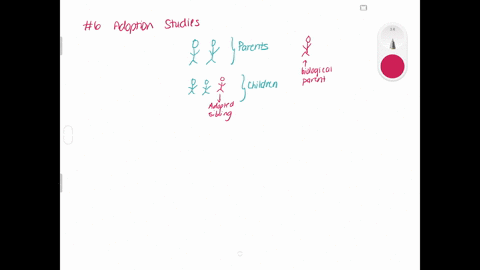 #6 Adoption Studies
Parents
biological
parent
Children
Adopted
sibling